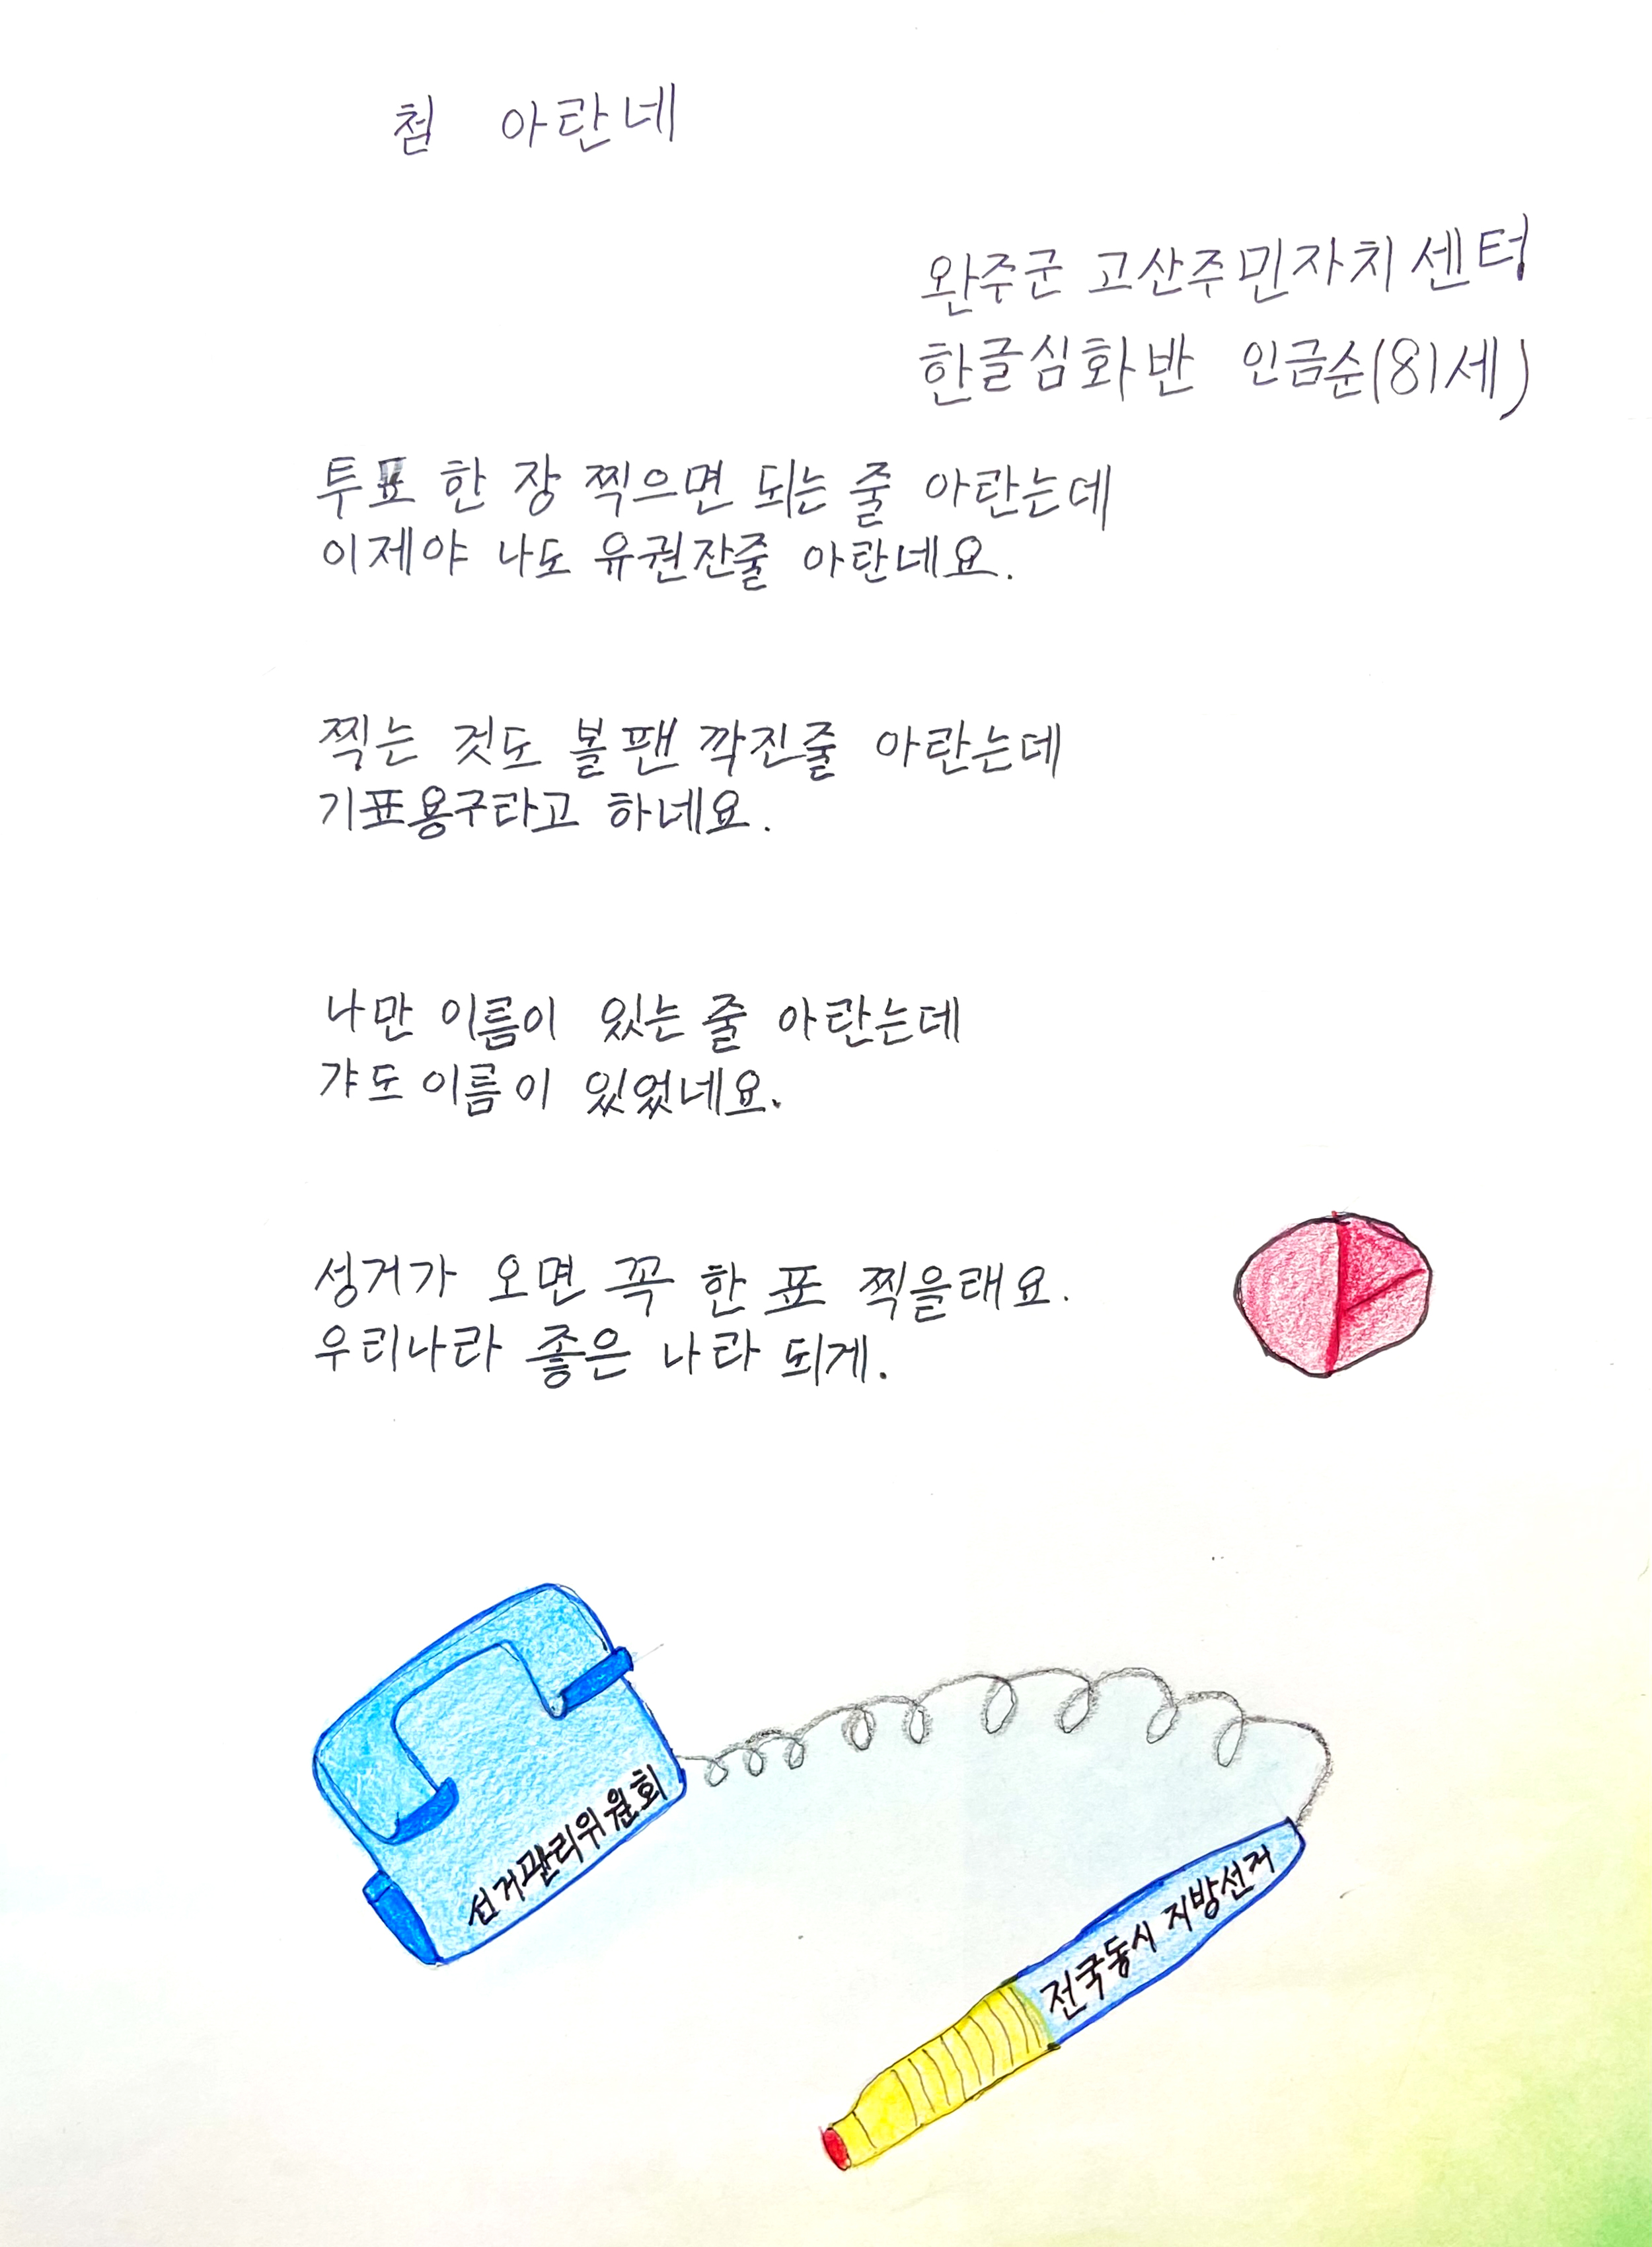 첨 아란네
완주군 고산주민자치센터
한글심화반 인금순(81세)
투표 한 장 찍으면 되는 줄 아란는데
이제야 나도 유권잔줄 아란네요.
찍는 것도 볼팬 깍진줄 아란는데
기표용구라고 하네요.
나만 이름이 있는 줄 아란는데
갸도 이름이 있었네요.
성거가 오면 꼭 한 표 찍을래요.
우리나라 좋은 나라 되게.
선거관리위원회
전국동시 지방선거